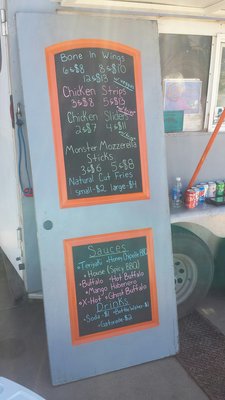 Bone In Wings
6 for $8 8 for $10
12 for $13
Chicken Strips
3 for $8 5 for $13
Chicken Sliders
2 for $7 4 for $11
Monster Mozzerella
Sticks
3 for $6 5 for $8
Natural Cut Fries
small-$2 large-$4
Sauces
Teriyaki • Honey Chipotle BBQ
• House (Spicy BBQ)
• Buffalo • Hot Buffalo
• Mango Habenero
• X-Hot • Ghost Buffalo
Drinks
Soda-$1 Bottle Water-$1
Gatorade-$2